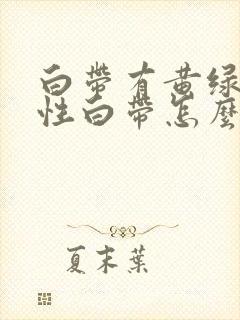 白帶有黄绿
性白帶怎麼
夏末葉